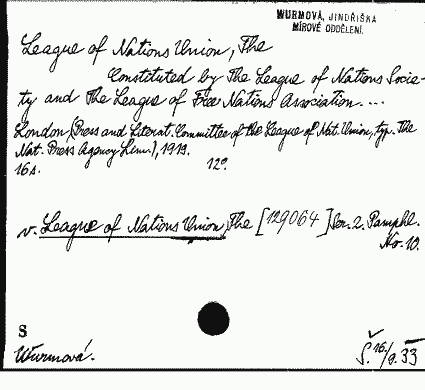 WURMOVÁ, JINDŘIŠKA
MÍROVÉ ODDĚLENÍ.
League of Nations Union, The
Constituted by The League of Nations Socie-
ty and The League of Free Nations Association....
London, (Press and Literat. Committee of the League of Nat. Union, typ. The
Nat. Press Agency Lim.), 1919.
16 s. 12°.
v. League of Nations Union, The [129064] Ser. 2. Pamphl.
No. 10.
S
Wurmová.
Š. 16/9. 33